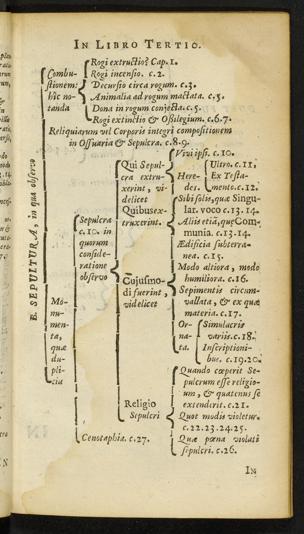 IN LIBRO TERTIO.
E. SEPULTURA, in qua observo
Combu-
stionem:
hîc no-
tanda
Rogi extructio? Cap. 1.
Rogi incensio. c.2.
Decursio circa rogum. c.3.
Animalia ad rogum mactata. c.5.
Dona in rogum conjecta. c.5.
Rogi extinctio & Ossilegium. c.6.7.
Reliquiarum vel Corporis integri compositionem
in Ossuaria & Sepulcra. c.8.9.
Mo-
nu-
men-
ta,
quæ
du-
pli-
cia
Sepulcra
c.10. in
quorum
conside-
ratione
observo
Qui Sepul-
cra extru-
xerint, vi-
delicet
Vivi ipsi. c.10.
Here-
des.
Ultro. c.11.
Ex Testa-
mento. c.12.
Quibus ex-
truxerint.
Sibi solis, quæ Singu-
lar. voco c.13.14.
Aliis etiã, quę Com-
munia. c.13.14.
Cujusmo-
di fuerint,
videlicet
Ædificia subterra-
nea. c.15.
Modo altiora, modo
humiliora. c.16.
Sepimentis circum-
vallata, & ex quæ
materia. c.17.
Or-
na-
ta.
Simulacris
variis. c.18.
Inscriptioni-
bus. c.19.20.
Religio
Sepulcri
Quando cœperit Se-
pulcrum esse religio-
sum, & quatenus se
extenderit. c.21.
Quot modis violetur.
c.22.23.24.25.
Quæ pœna violati
sepulcri. c.26.
Cenotaphia. c.27.
IN